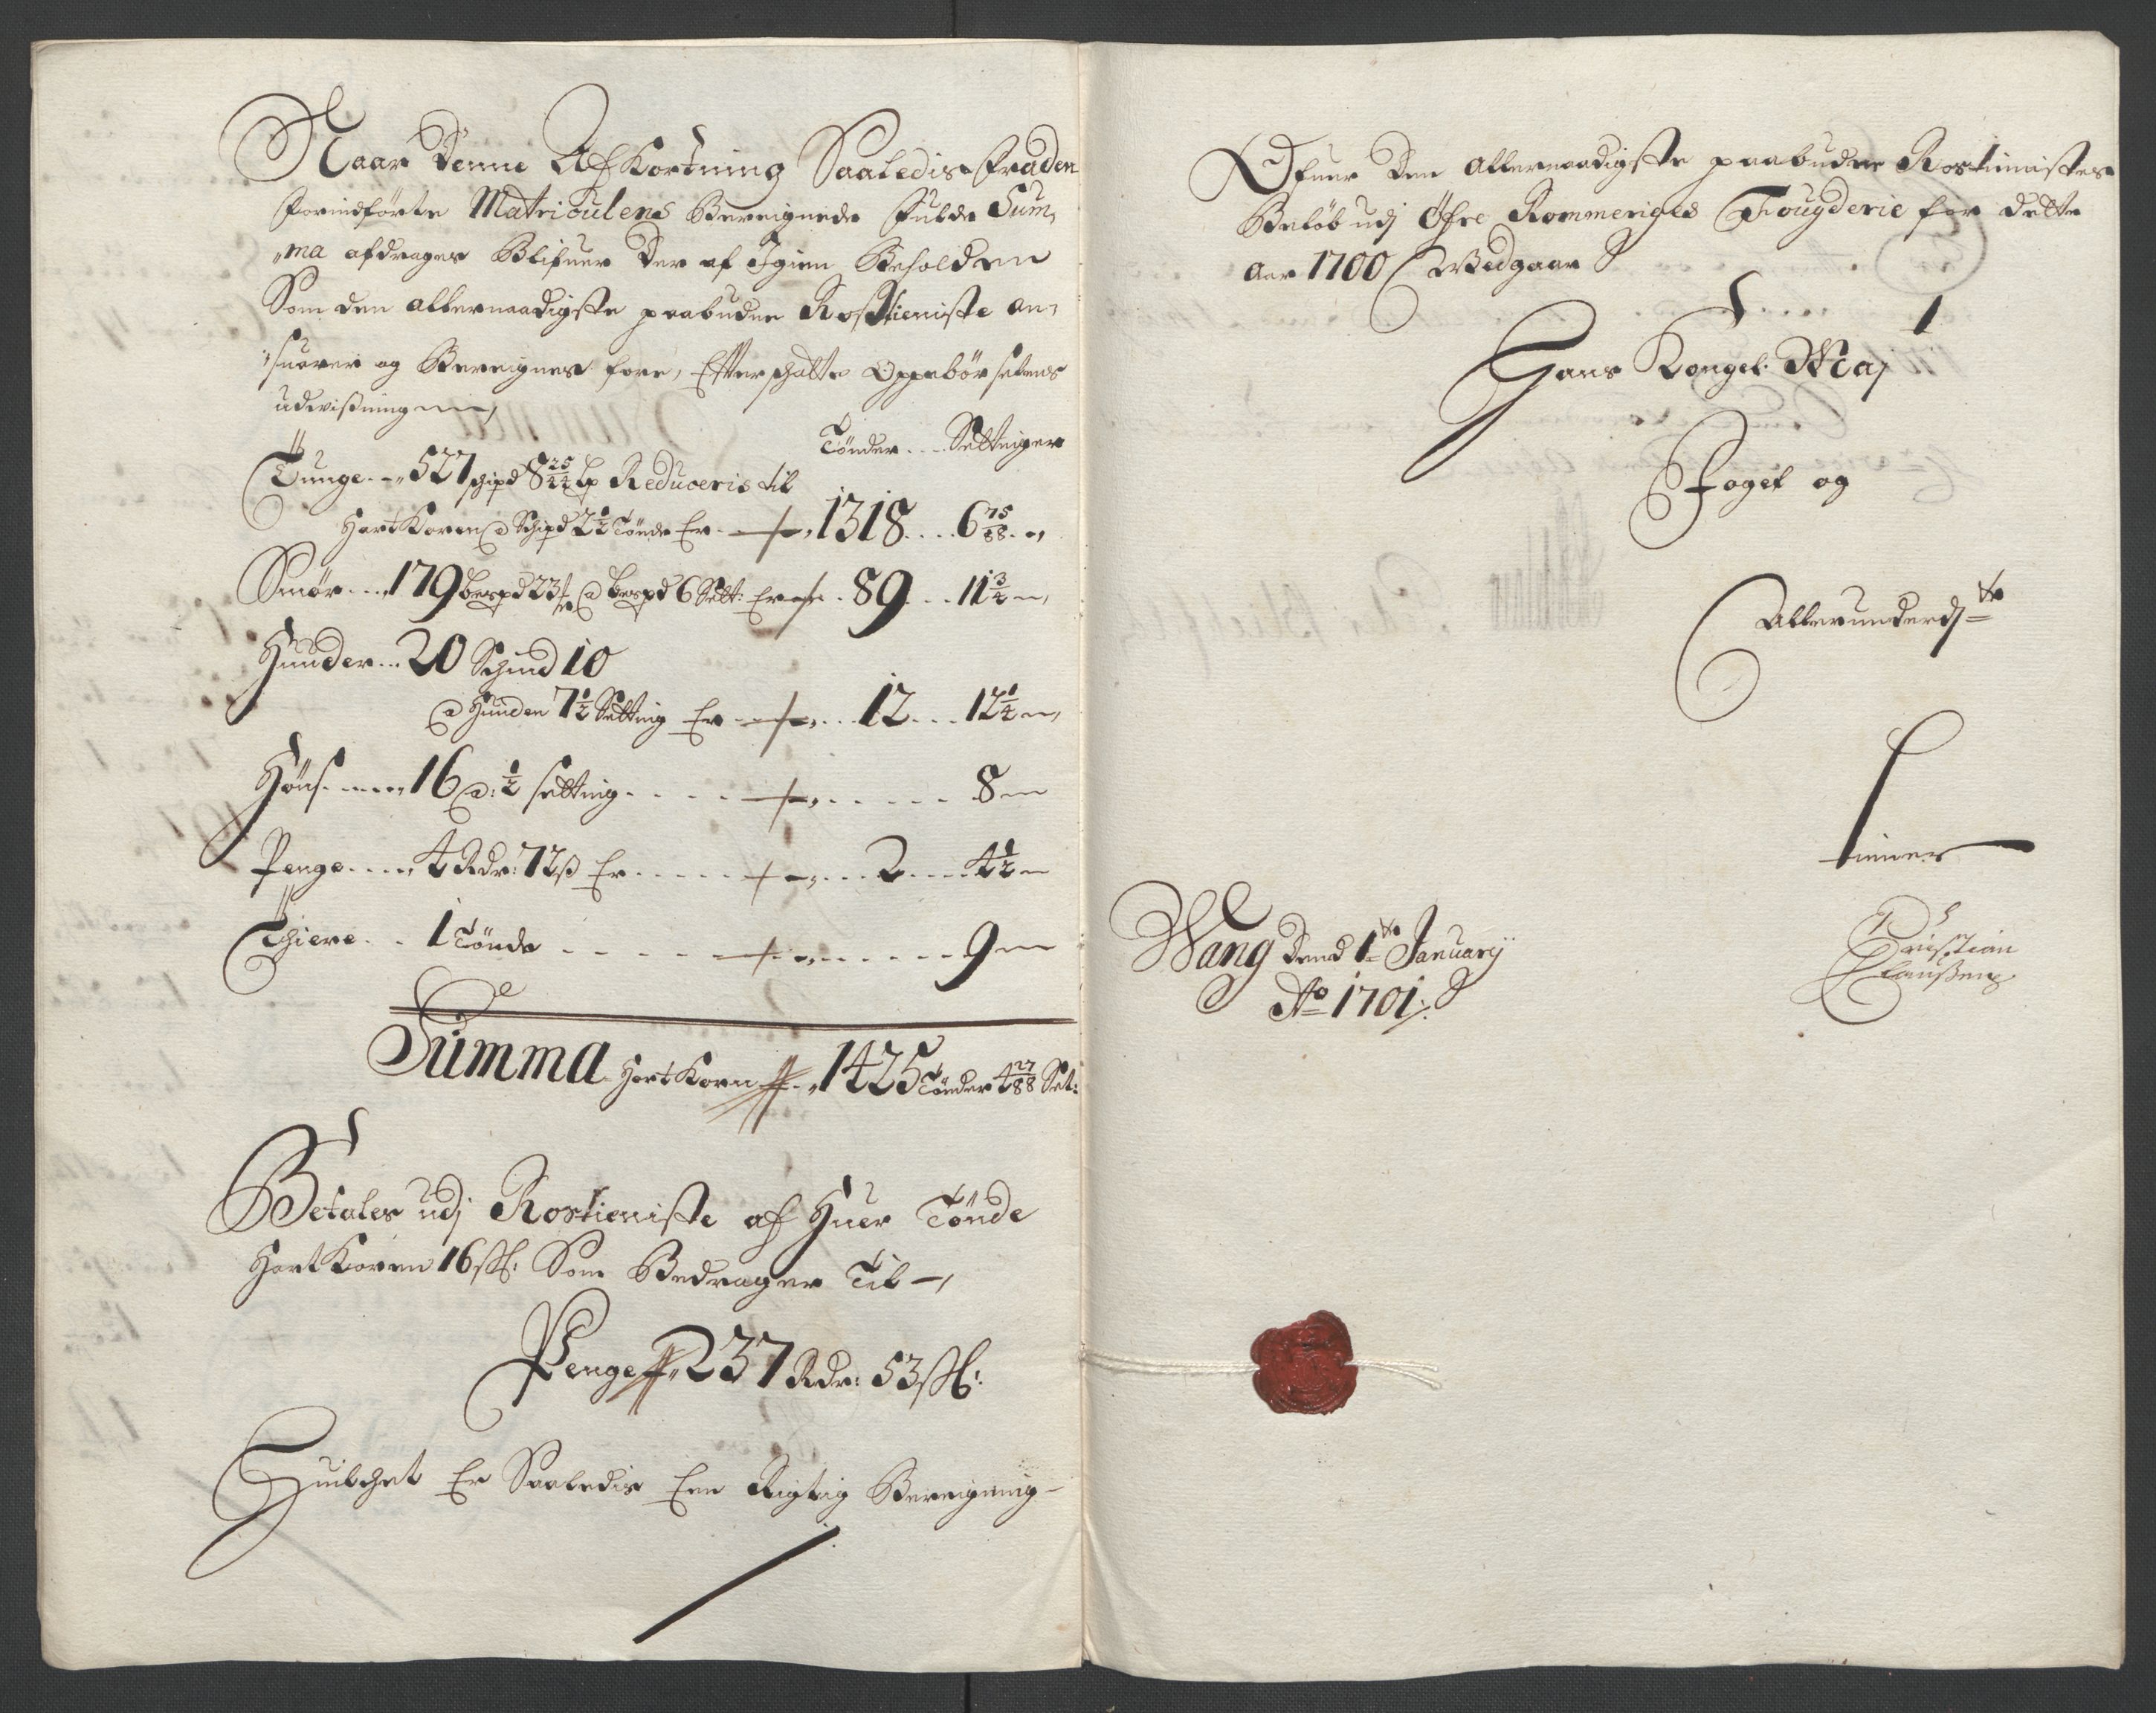 Naar denne Af Kortning Saaledis fra den
forindförte Matriculens Beregnede fulde Sum,
„ma afdrages Blifuer der af Igien Beholden
Som den allernaadigste paabudne Rostieniste an,
„suarer og Beregnes fore, Effter schatte Oppebörselens
udvisning
Tönder . . . Setinger
Tunge . - „ 527 schipd 8 25/44 lp Reduceris til
Hart Koren @ Schipd 2 1/2 Tönde Er - „ 1318 . . . . 6 75/88
Smör . . . 179 bespd 23 @ bespd 6 Sett: Er . 89 . . . 11 3/4
Huuder . . . 20 Schind 10
@ Huuden 7 1/2 Setting Er . . . 12 . . . 12 1/4
Höns . . . . 16 @: 1/2 setting . . . . . . . . 8
Penge . . . . 4 Rdr: 72 ß Er . . . . . 2 . . . . 4 1/2
Thiere . . 1 Tönde . . . . . . . . . . 9
Summa Hart Korn „ 1425 Tönder 4 27/88 Set:
Betales udj Rostieniste af Huer Tönde
Hart Koren 16 sk: Som Bedrager Til
Penge „ 237 Rdr: 53 sk:
Huilchet Er Saaledis Een Rigtig Beregning
Ofuer den allernaadigste paabudne Rostienistes
Belöb udj Öfre Rommeriges Fougderie for dette
Aar 1700 Vedgaar
Hans Kongel: May
Foget og
Allerunderd
tiener
Wang dend 1 January
Ao 1701
Christian
Claußen